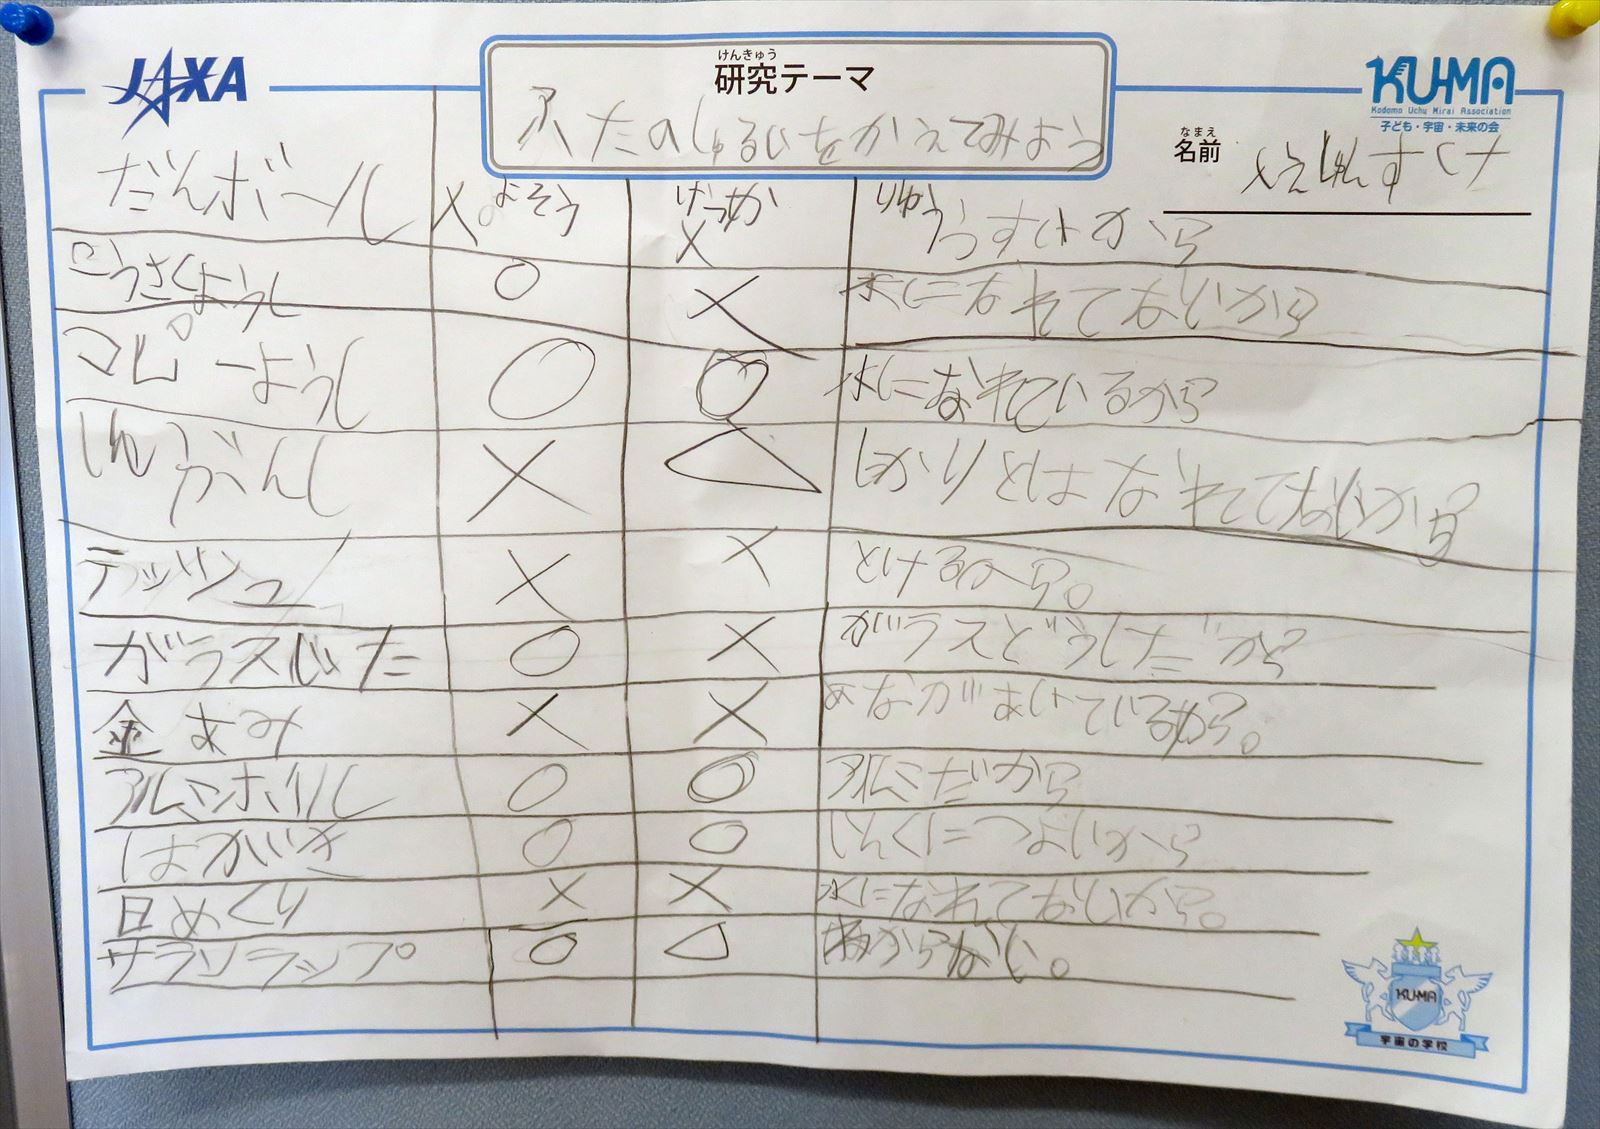 JAXA
けんきゅう
研究テーマ
ふたのしゅるいをかえてみよう
KU-MA
Kodomo Uchu Mirai Association
子ども・宇宙・未来の会
なまえ
名前
だんボール ×。よそう けっか × りゆう うすいから
こうさくようし ○ × 水になれてないから
コピーようし ○ ○ 水になれているから
がようし × △ しかりとはなれてないから
テッシュ × × とけるから。
ガラスじた ○ × ガラスどうしだから
金あみ × × あながあいているから。
アルミホイル ○ ○ アルミだから
はがき ○ ○ いんくにつよいから
日めくり × × 水になれてないから。
サランラップ ○ △ わからない。
KU-MA
宇宙の学校